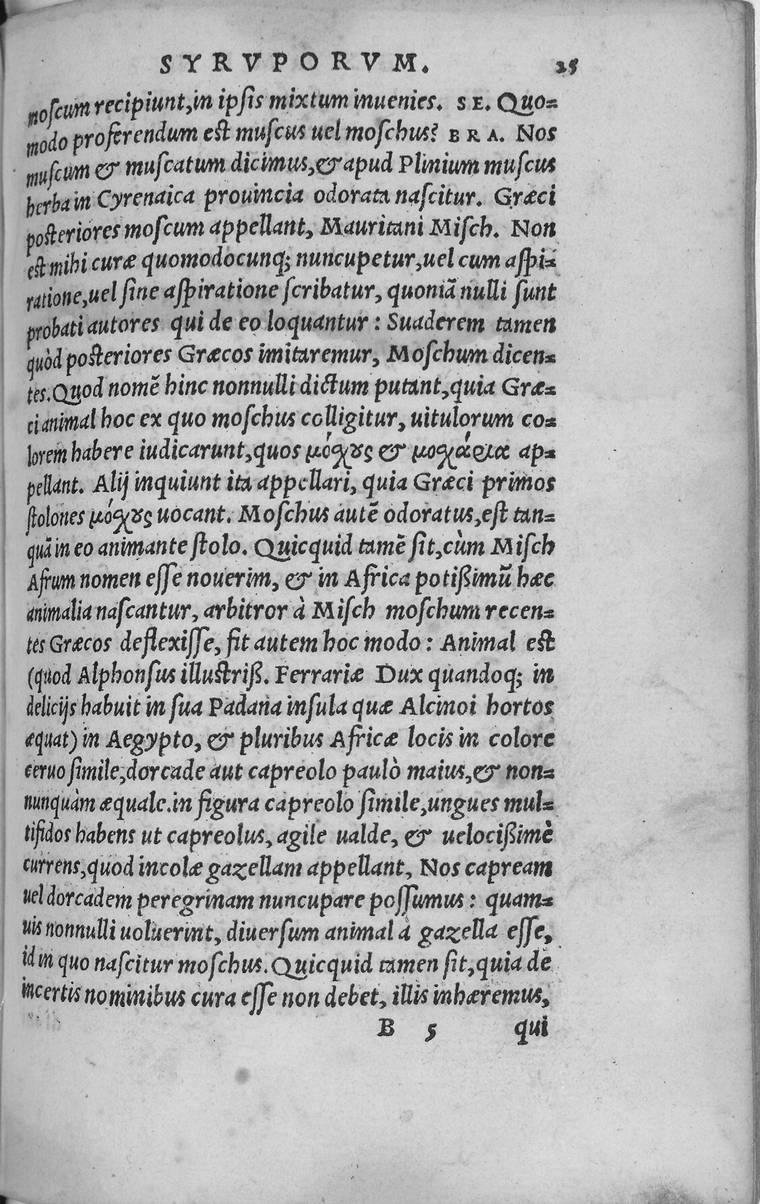 SYRVPORVM. 25
noſcum recipiunt,in ipſis mixtum inuenies. SE. Quo=
modo proferendum est muſcus uel moſchus? BRA. Nos
muſcum & muſcatum dicimus,& apud Plinium muſcus
herba in Cyrenaica prouincia odorata naſcitur. Græci
posteriores moſcum appellant, Mauritani Miſch. Non
est mihi curæ quomodocunq; nuncupetur,uel cum aſpi=
ratione,uel ſine aſpiratione ſcribatur, quoniã nulli ſunt
probati autores qui de eo loquantur : Suaderem tamen
quòd posteriores Græcos imitaremur, Moſchum dicen=
tes. Quod nomẽ hinc nonnulli dictum putant,quia Græ=
ci animal hoc ex quo moſchus colligitur, uitulorum co=
lorem habere iudicarunt,quos μόχȣς & μοχάρια ap=
pellant. Alij inquiunt ita appellari, quia Græci primos
ſtolones μόχȣς uocant. Moſchus autẽ odoratus,est tan=
quã in eo animante ſtolo. Quicquid tamẽ ſit,cùm Miſch
Afrum nomen eſſe nouerim, & in Africa potißimũ hæc
animalia naſcantur, arbitror à Miſch moſchum recen=
tes Græcos deflexiſſe, fit autem hoc modo : Animal est
(quod Alphonſus illuſtriß. Ferrariæ Dux quandoq; in
delicijs habuit in ſua Padana inſula quæ Alcinoi hortos
æquat) in Aegypto, & pluribus Africæ locis in colore
ceruo ſimile,dorcade aut capreolo paulò maius,& non=
nunquàm æquale.in figura capreolo ſimile,ungues mul=
tifidos habens ut capreolus, agile ualde, & uelocißimè
currens,quod incolæ gazellam appellant, Nos capream
uel dorcadem peregrinam nuncupare poſſumus : quam=
uis nonnulli uoluerint, diuerſum animal à gazella eſſe,
id in quo naſcitur moſchus. Quicquid tamen ſit,quia de
incertis nominibus cura eſſe non debet, illis inhæremus,
B 5 qui